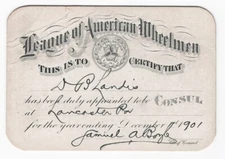 League of American Wheelmen
THIS IS TO CERTIFY THAT
D B Landis
has been duly appointed to be CONSUL
at Lancaster Pa
for the year ending December 1st 1901
Samuel A Boyle
Chief Consul